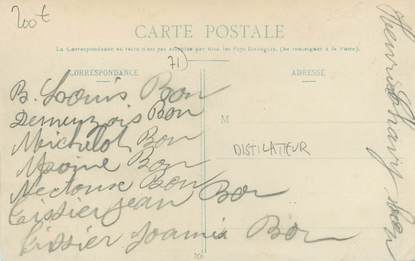 200€
CARTE POSTALE
La Correspondance au recto n'est pas acceptée par tous les Pays Étrangers. (Se renseigner à la Poste).
71)
CORRESPONDANCE
ADRESSE
B. Louis Bon
Demeuzois Bon
Michelot Bon
Moine Bon
Bon
M
DISTILATEUR
Tissier Jean Bon
Tissier Joannès Bon
Henri Bon